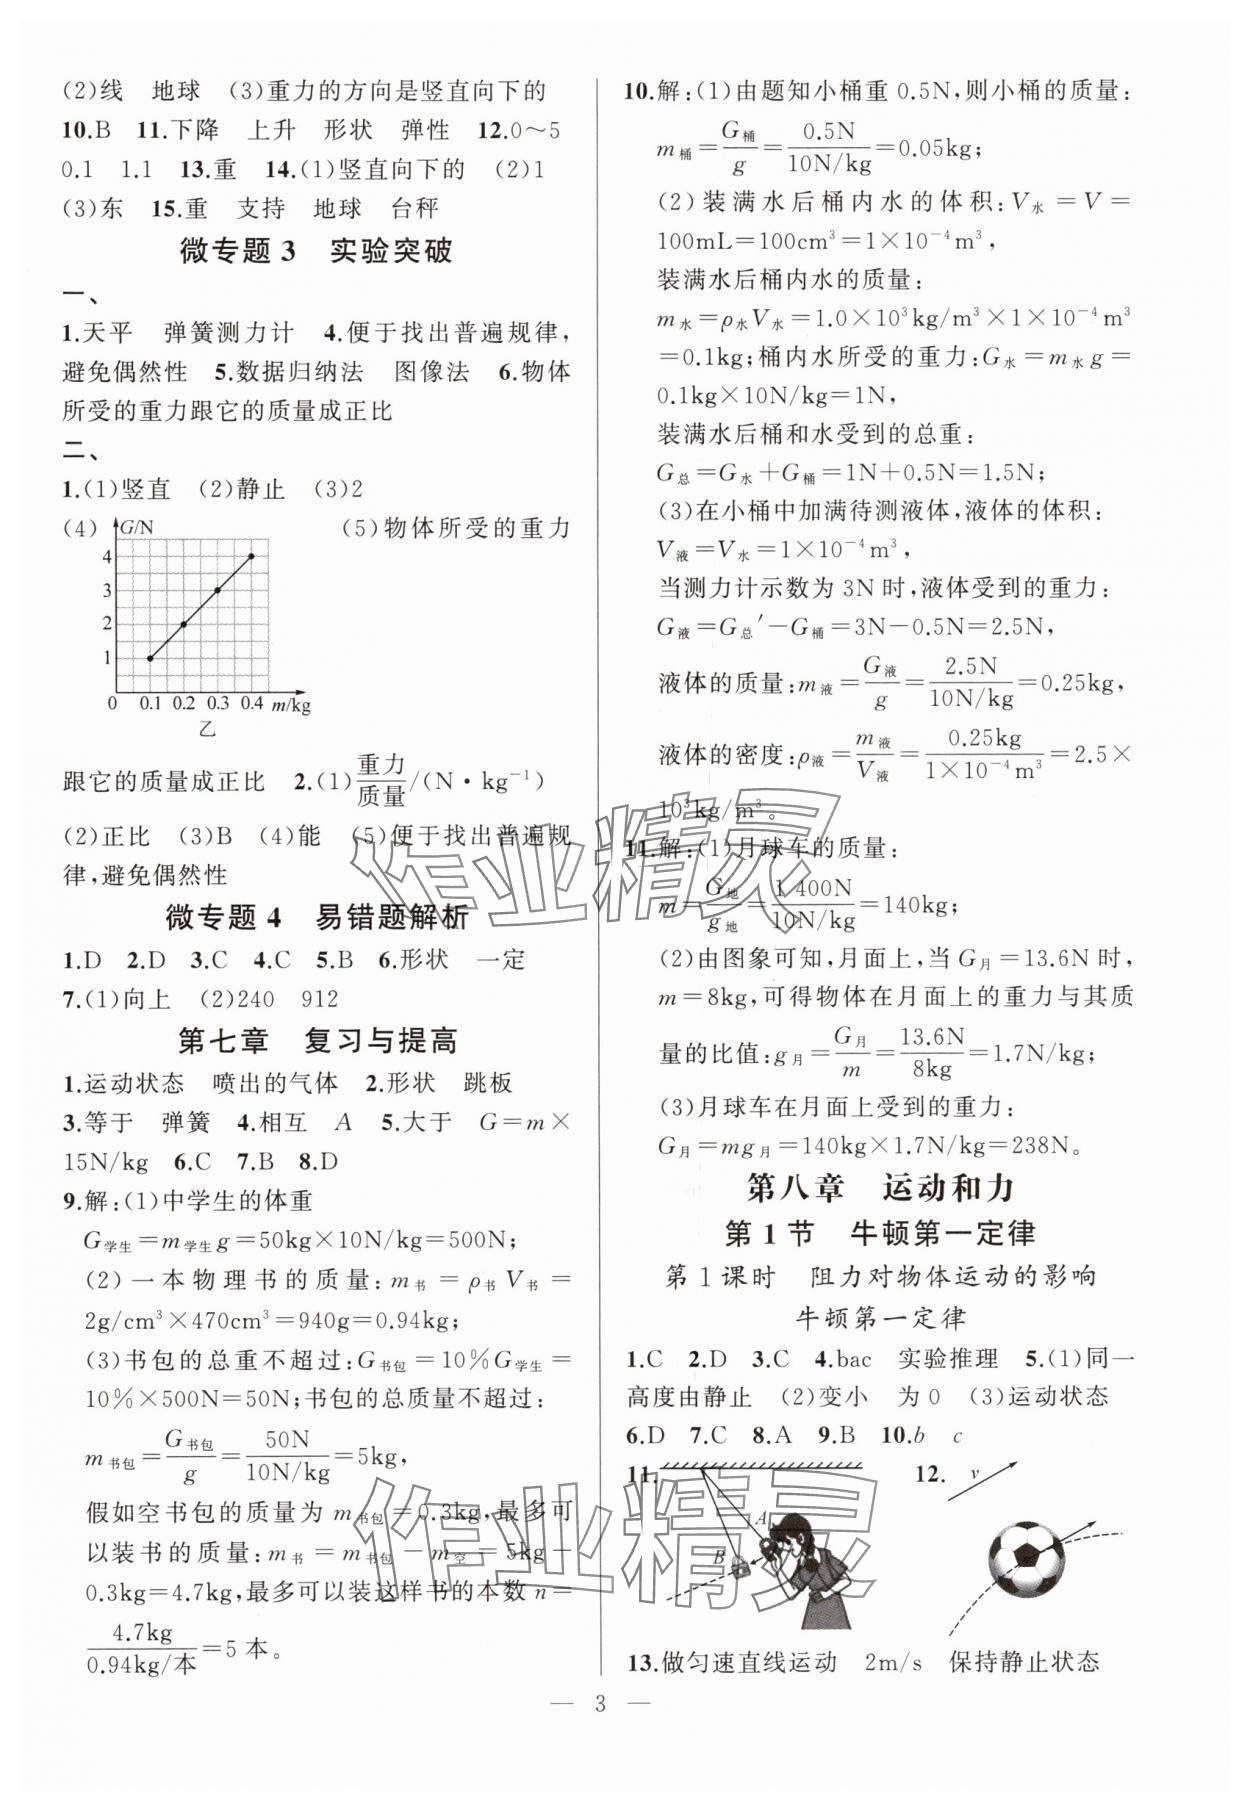 (2)线　地球　(3)重力的方向是竖直向下的
10.B　11.下降　上升　形状　弹性　12.0～5
0.1　1.1　13.重　14.(1)竖直向下的　(2)1
(3)东　15.重　支持　地球　台秤
微专题3　实验突破
一、
1.天平　弹簧测力计　4.便于找出普遍规律，
避免偶然性　5.数据归纳法　图像法　6.物体
所受的重力跟它的质量成正比
二、
1.(1)竖直　(2)静止　(3)2
(4)　(5)物体所受的重力
G/N
4
3
2
1
0　0.1　0.2　0.3　0.4　m/kg
乙
跟它的质量成正比　2.(1)重力/质量/(N·kg⁻¹)
(2)正比　(3)B　(4)能　(5)便于找出普遍规
律，避免偶然性
微专题4　易错题解析
1.D　2.D　3.C　4.C　5.B　6.形状　一定
7.(1)向上　(2)240　912
第七章　复习与提高
1.运动状态　喷出的气体　2.形状　跳板
3.等于　弹簧　4.相互　A　5.大于　G＝m×
15N/kg　6.C　7.B　8.D
9.解：(1)中学生的体重
G学生＝m学生g＝50kg×10N/kg＝500N；
(2)一本物理书的质量：m书＝ρ书V书＝
2g/cm³×470cm³＝940g＝0.94kg；
(3)书包的总重不超过：G书包＝10%G学生＝
10%×500N＝50N；书包的总质量不超过：
m书包＝G书包/g＝50N/10N/kg＝5kg，
假如空书包的质量为m书包＝0.3kg，最多可
以装书的质量：m书＝m书包－m空＝5kg－
0.3kg＝4.7kg，最多可以装这样书的本数n＝
4.7kg/0.94kg/本＝5本。
10.解：(1)由题知小桶重0.5N，则小桶的质量：
m桶＝G桶/g＝0.5N/10N/kg＝0.05kg；
(2)装满水后桶内水的体积：V水＝V＝
100mL＝100cm³＝1×10⁻⁴m³，
装满水后桶内水的质量：
m水＝ρ水V水＝1.0×10³kg/m³×1×10⁻⁴m³
＝0.1kg；桶内水所受的重力：G水＝m水g＝
0.1kg×10N/kg＝1N，
装满水后桶和水受到的总重：
G总＝G水＋G桶＝1N＋0.5N＝1.5N；
(3)在小桶中加满待测液体，液体的体积：
V液＝V水＝1×10⁻⁴m³，
当测力计示数为3N时，液体受到的重力：
G液＝G总′－G桶＝3N－0.5N＝2.5N，
液体的质量：m液＝G液/g＝2.5N/10N/kg＝0.25kg，
液体的密度：ρ液＝m液/V液＝0.25kg/1×10⁻⁴m³＝2.5×
10³kg/m³。
11.解：(1)月球车的质量：
m＝G地/g地＝1 400N/10N/kg＝140kg；
(2)由图象可知，月面上，当G月＝13.6N时，
m＝8kg，可得物体在月面上的重力与其质
量的比值：g月＝G月/m＝13.6N/8kg＝1.7N/kg；
(3)月球车在月面上受到的重力：
G月＝mg月＝140kg×1.7N/kg＝238N。
第八章　运动和力
第1节　牛顿第一定律
第1课时　阻力对物体运动的影响
牛顿第一定律
1.C　2.D　3.C　4.bac　实验推理　5.(1)同一
高度由静止　(2)变小　为0　(3)运动状态
6.D　7.C　8.A　9.B　10.b　c
11.　12.
v
A
B
13.做匀速直线运动　2m/s　保持静止状态
— 3 —
作业精灵
作业精灵